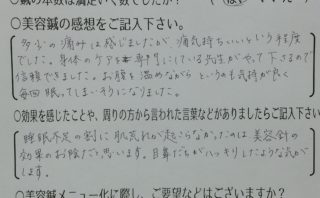 ○鍼の本数は満足いく数でしたか？ （はい いいえ）
○美容鍼の感想をご記入下さい。
多少の痛みは感じましたが、痛気持ちいいという程度
でした。身体のケアを専門にしている先生がやって下さるので
信頼できました。お腹を温めながらというのも気持が良く
毎回眠ってしまいそうになりました。
○効果を感じたことや、周りの方から言われた言葉などがありましたらご記入下さい
睡眠不足の割に肌荒れが起こらなかったのは美容針の
効果のお陰だと思います。目鼻だちがハッキリしたような気が
します。
○美容鍼メニュー化に際し、ご要望などはございますか？